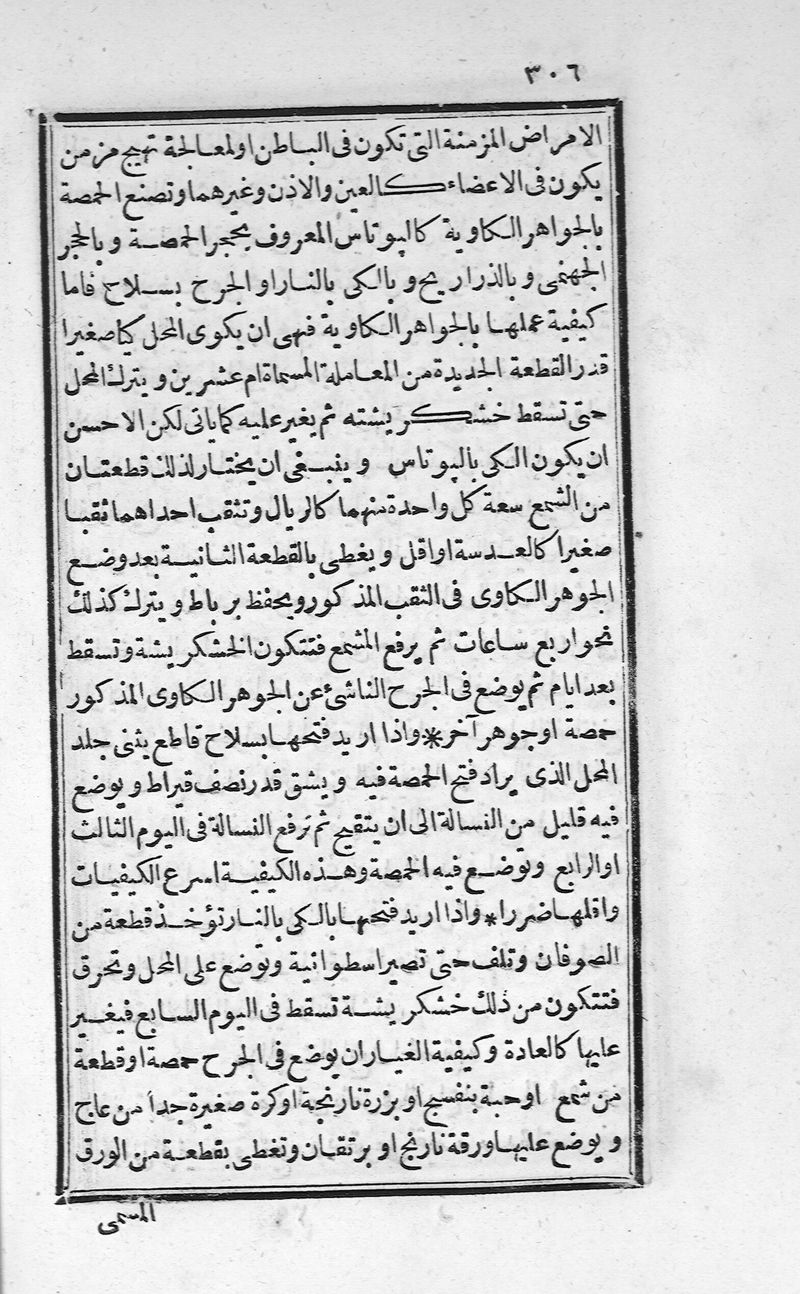 ٣٠٦
الامراض المزمنة التى تكون فى الباطن او لمعالجة تهيج مزمن
يكون فى الاعضاء كالعين والاذن وغيرهما وتصنع الحمصة
بالجواهر الكاوية كالپوتاس المعروف بحجر الحمصة وبالحجر
الجهنمى وبالذراريح وبالكى بالنار او الجرح بسلاح فاما
كيفية عملها بالجواهر الكاوية فهى ان يكوى المحل كيا صغيرا
قدر القطعة الجديدة من المعاملة المسماة ام عشرين ويترك المحل
حتى تسقط خشكريشته ثم يغير عليه كما ياتى لكن الاحسن
ان يكون الكى بالپوتاس وينبغى ان يختار لذلك قطعتان
من الشمع سعة كل واحدة منهما كالريال وتثقب احداهما ثقبا
صغيرا كالعدسة او اقل ويغطى بالقطعة الثانية بعد وضع
الجوهر الكاوى فى الثقب المذكور ويحفظ برباط ويترك كذلك
نحو اربع ساعات ثم يرفع المشمع فتتكون الخشكريشة وتسقط
بعد ايام ثم يوضع فى الجرح الناشئ عن الجوهر الكاوى المذكور
حمصة او جوهر آخر * واذا اريد فتحها بسلاح قاطع يثنى جلد
المحل الذى يراد فتح الحمصة فيه ويشق قدر نصف قيراط ويوضع
فيه قليل من النسالة الى ان يتقيح ثم ترفع النسالة فى اليوم الثالث
او الرابع وتوضع فيه الحمصة وهذه الكيفية اسرع الكيفيات
واقلها ضررا * واذا اريد فتحها بالكى بالنار تؤخذ قطعة من
الصوفان وتلف حتى تصير اسطوانية وتوضع على المحل وتحرق
فتتكون من ذلك خشكريشة تسقط فى اليوم السابع فيغير
عليها كالعادة وكيفية الغيار ان يوضع فى الجرح حمصة او قطعة
من شمع او حبة بنفسج او بزرة نارنجة او كرة صغيرة جدا من عاج
ويوضع عليها ورقة نارنج او برتقان وتغطى بقطعة من الورق
المسمى